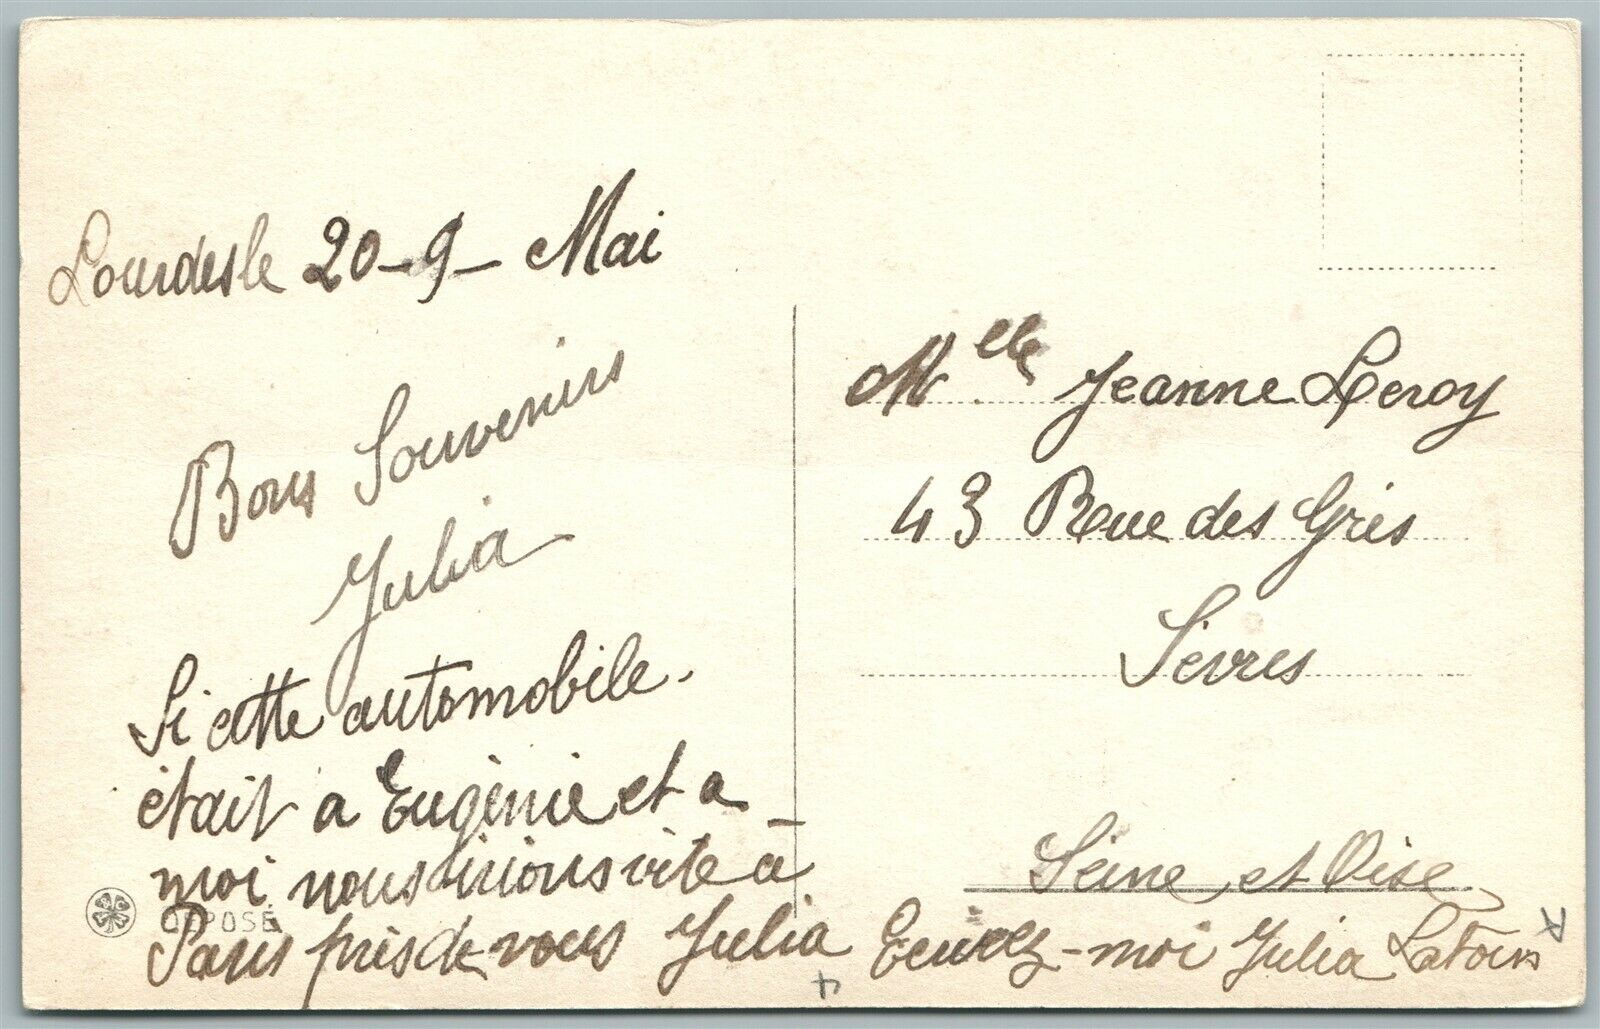 Lourdes le 20-9- Mai
Bons Souvenirs
Julia
Si cette automobile.
était a Eugénie et a
moi nous irions vite à
Paris près de vous Julia
DÉPOSÉ
Melle Jeanne Leroy
43 Rue des Grès
Sèvres
Seine et Oise
Ecrivez-moi Julia